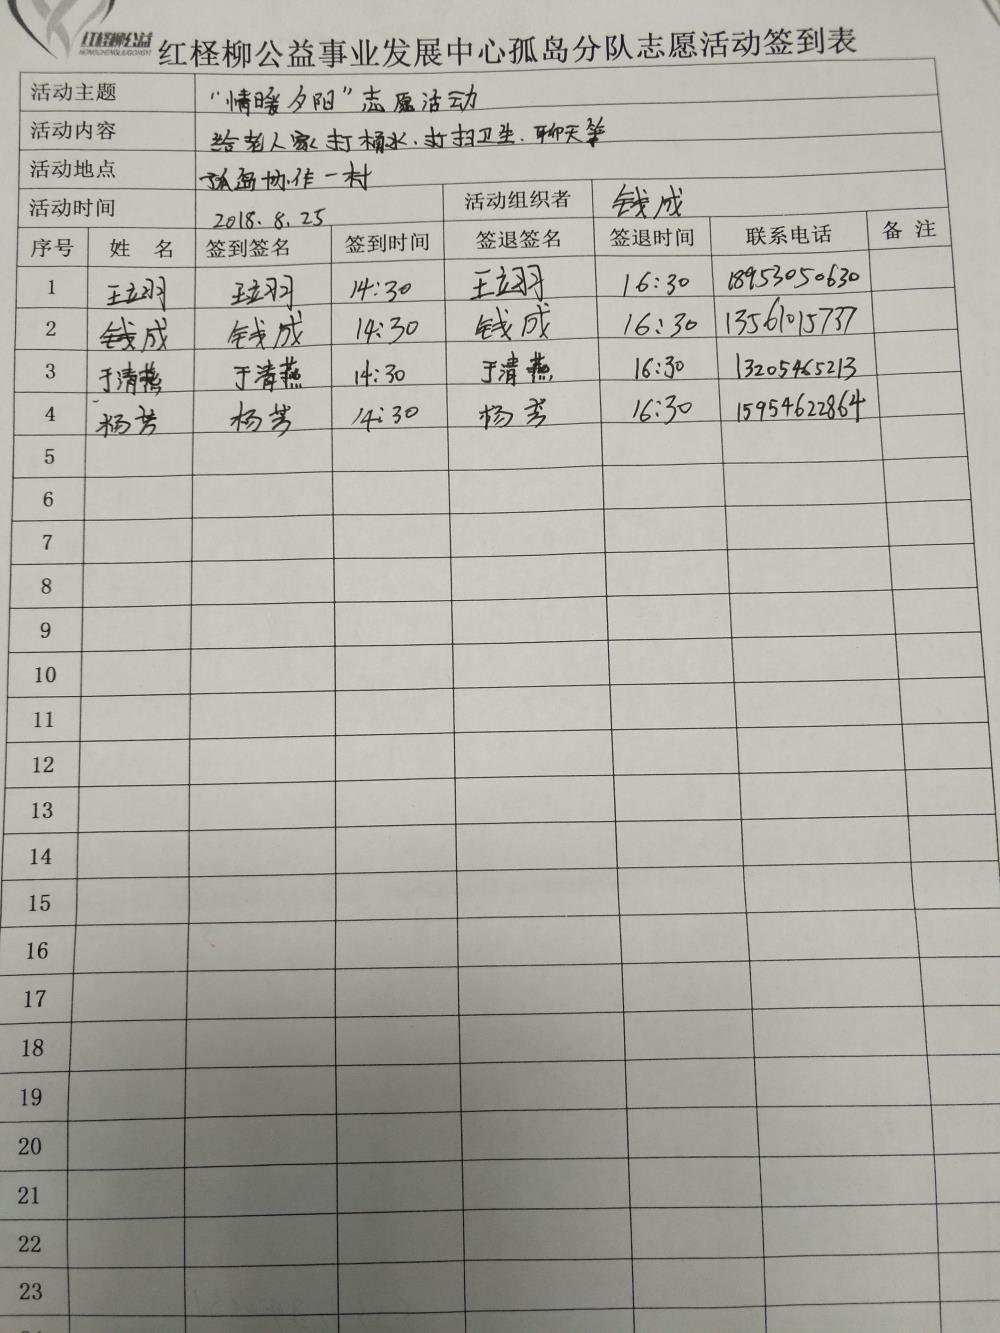 红柽柳公益
HONGCHENGLIUGONGYI
红柽柳公益事业发展中心孤岛分队志愿活动签到表
活动主题 “情暖夕阳”志愿活动
活动内容 给老人家打桶水.打扫卫生.聊天等
活动地点 孤岛协作一村
活动时间 2018.8.25 活动组织者 钱成
序号 姓 名 签到签名 签到时间 签退签名 签退时间 联系电话 备 注
1 王立羽 王立羽 14:30 王立羽 16:30 18953050630
2 钱成 钱成 14:30 钱成 16:30 13561015737
3 于清燕 于清燕 14:30 于清燕 16:30 13205465213
4 杨芳 杨芳 14:30 杨芳 16:30 15954622864
5
6
7
8
9
10
11
12
13
14
15
16
17
18
19
20
21
22
23